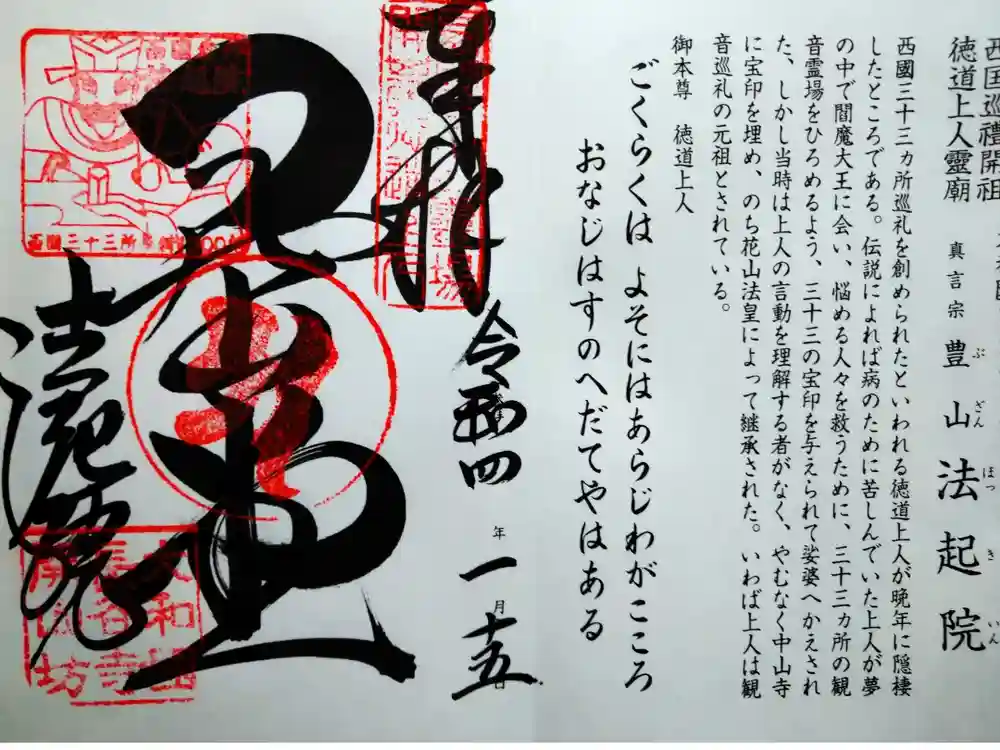 西国巡禮開祖
徳道上人靈廟
真言宗 豊山法起院
ぶざんほっきいん
西國三十三ヵ所巡礼を創められたといわれる徳道上人が晩年に隠棲
したところである。伝説によれば病のために苦しんでいた上人が夢
の中で閻魔大王に会い、悩める人々を救うために、三十三ヵ所の観
音霊場をひろめるよう、三十三の宝印を与えられて娑婆へかえされ
た、しかし当時は上人の言動を理解する者がなく、やむなく中山寺
に宝印を埋め、のち花山法皇によって継承された。いわば上人は観
音巡礼の元祖とされている。
御本尊 徳道上人
ごくらくは よそにはあらじわがこころ
おなじはすのへだてやはある
奉拝
令和四年一月十五
法起院
大和
長谷寺
開山坊